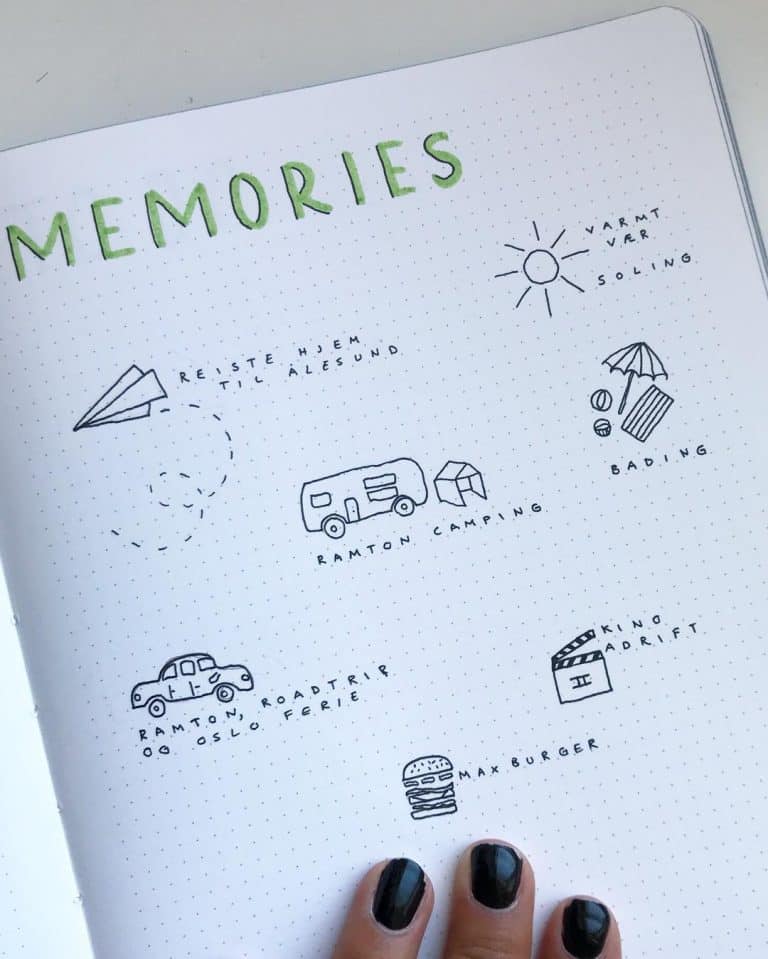 MEMORIES
VARMT
VÆR
SOLING
REISTE HJEM
TIL ÅLESUND
BADING
RAMTON CAMPING
KINO
ADRIFT
II
RAMTON, ROADTRIP
OG OSLO FERIE
MAX BURGER